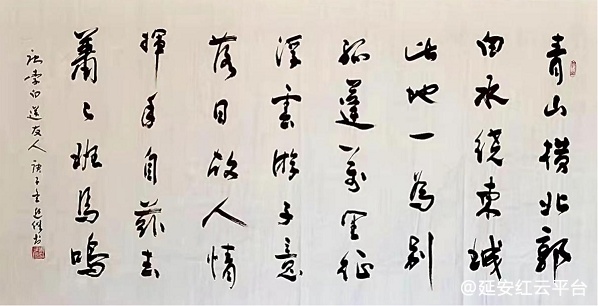 青山横北郭
白水绕東城
此地一為别
孤蓬万里征
浮雲游子意
落日故人情
揮手自兹去
蕭々班马鸣
李白送友人 庚子 书
@延安红云平台